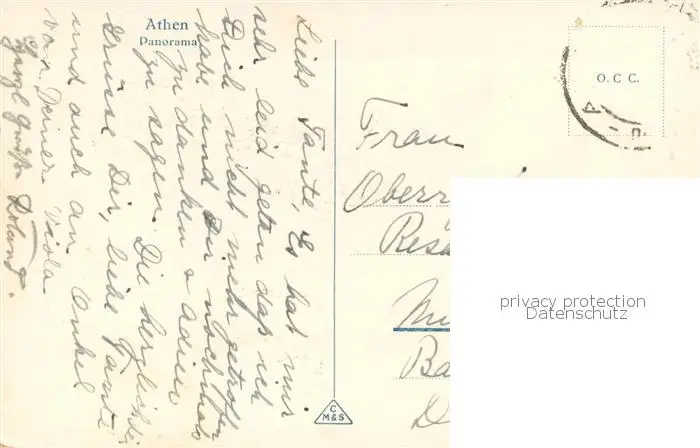 Athen
Panorama
Liebe Tante, Es hat mir
sehr leid getan das ich
Dich nicht mehr getroffen
habe und Dir nochmals
zu danken & adieu
zu sagen. Die herzlichste
Grüsse Dir, liebe Tante
und auch an Onkel
von Deiner Viola
Grüsse Roland.
O. C. C.
Frau
Oberr
Resi
Mü
Ba
D
C
M&S
privacy protection
Datenschutz